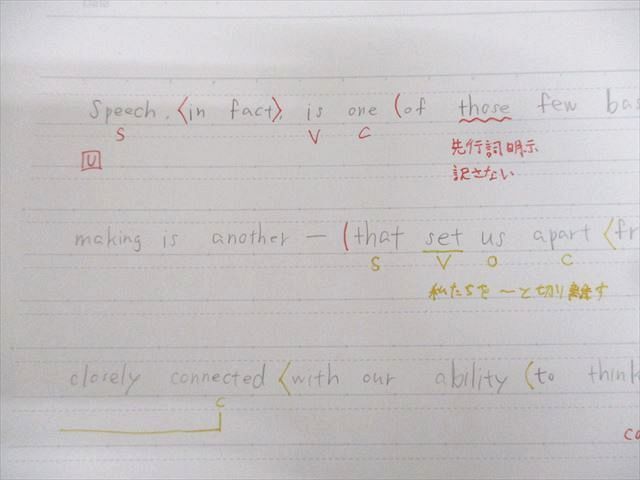 Speech, 〈in fact〉, is one (of those few
S V C
U
先行詞明示
訳さない
making is another — (that set us apart 〈
S V O C
私たちを〜と切り離す
closely connected 〈with our ability (to think
C